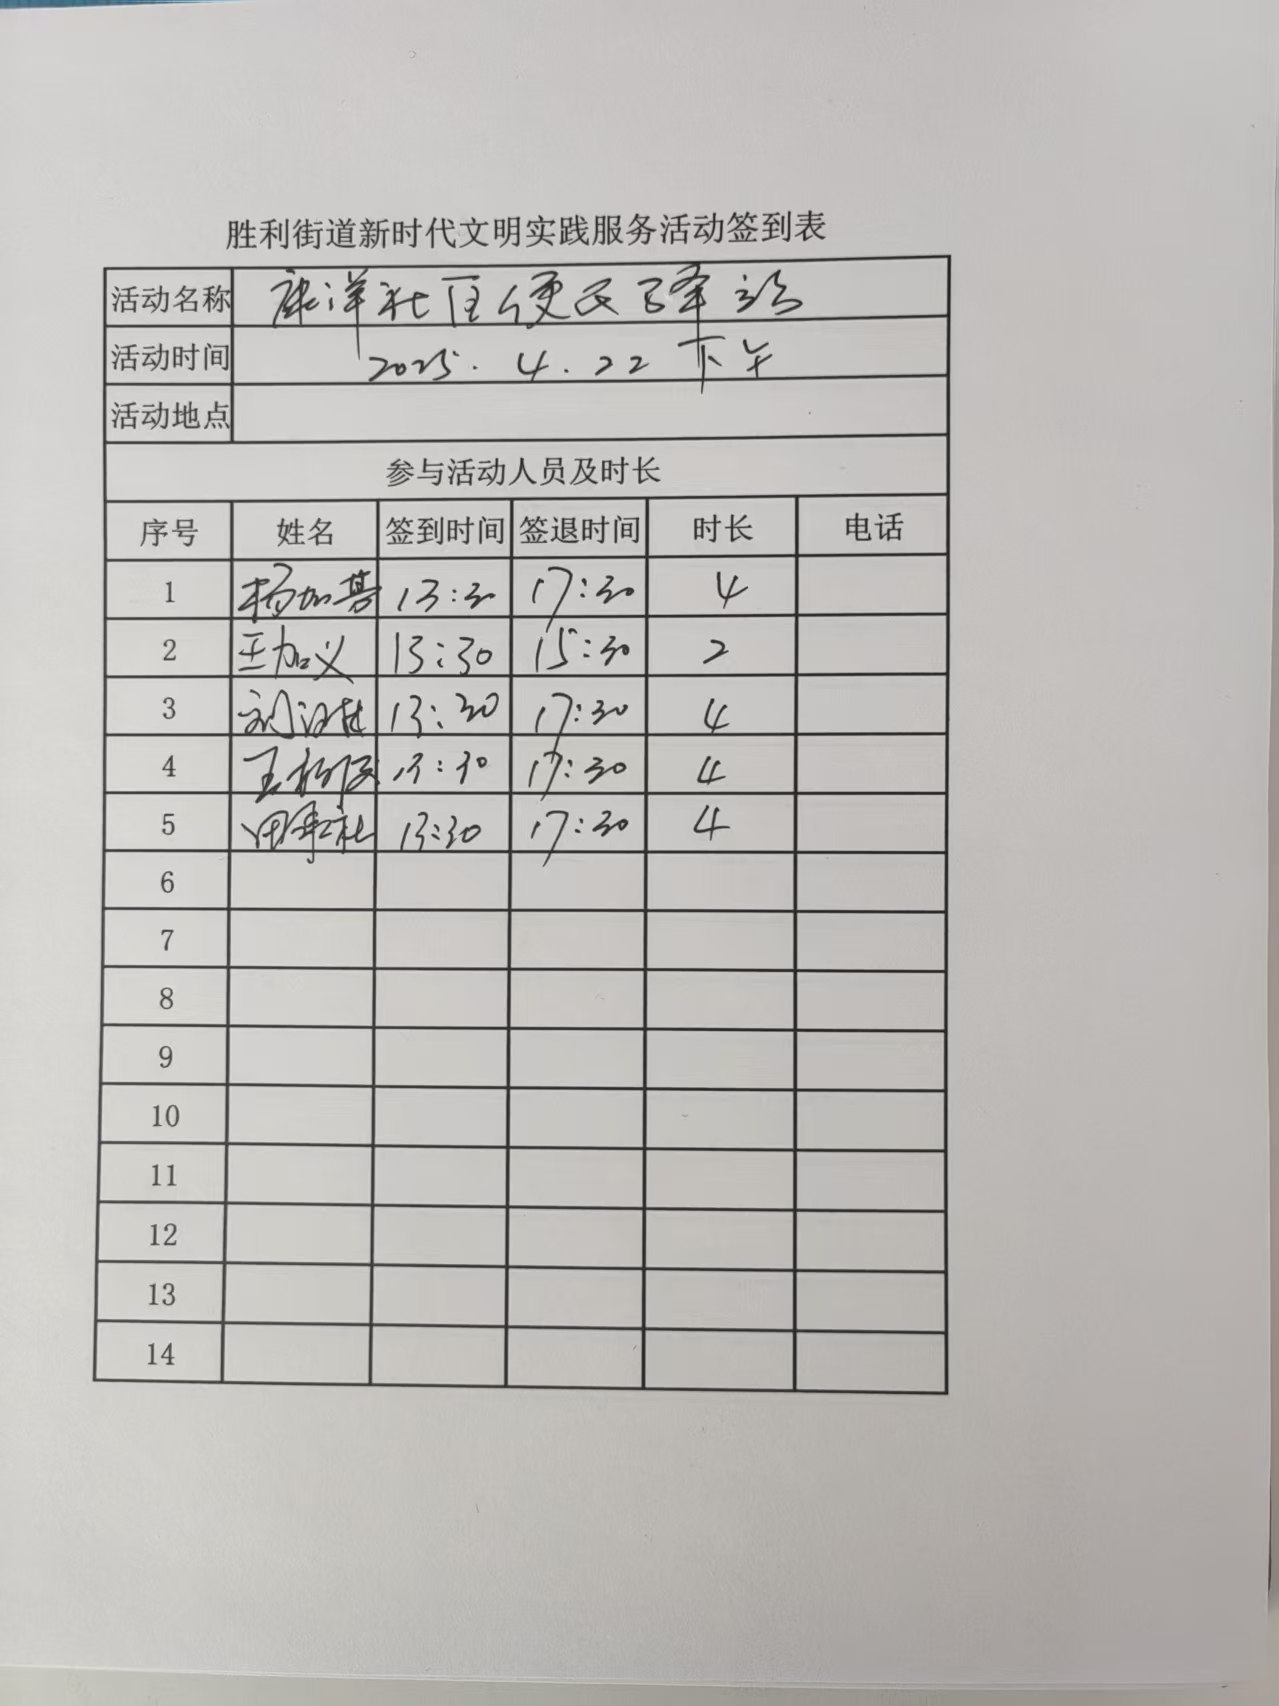 胜利街道新时代文明实践服务活动签到表
活动名称 康洋社区便民驿站
活动时间 2025.4.22 下午
活动地点
参与活动人员及时长
序号 姓名 签到时间 签退时间 时长 电话
1 杨加 13:30 17:30 4
2 王加义 13:30 15:30 2
3 刘 13:30 17:30 4
4 王 13:30 17:30 4
5 田 13:30 17:30 4
6
7
8
9
10
11
12
13
14